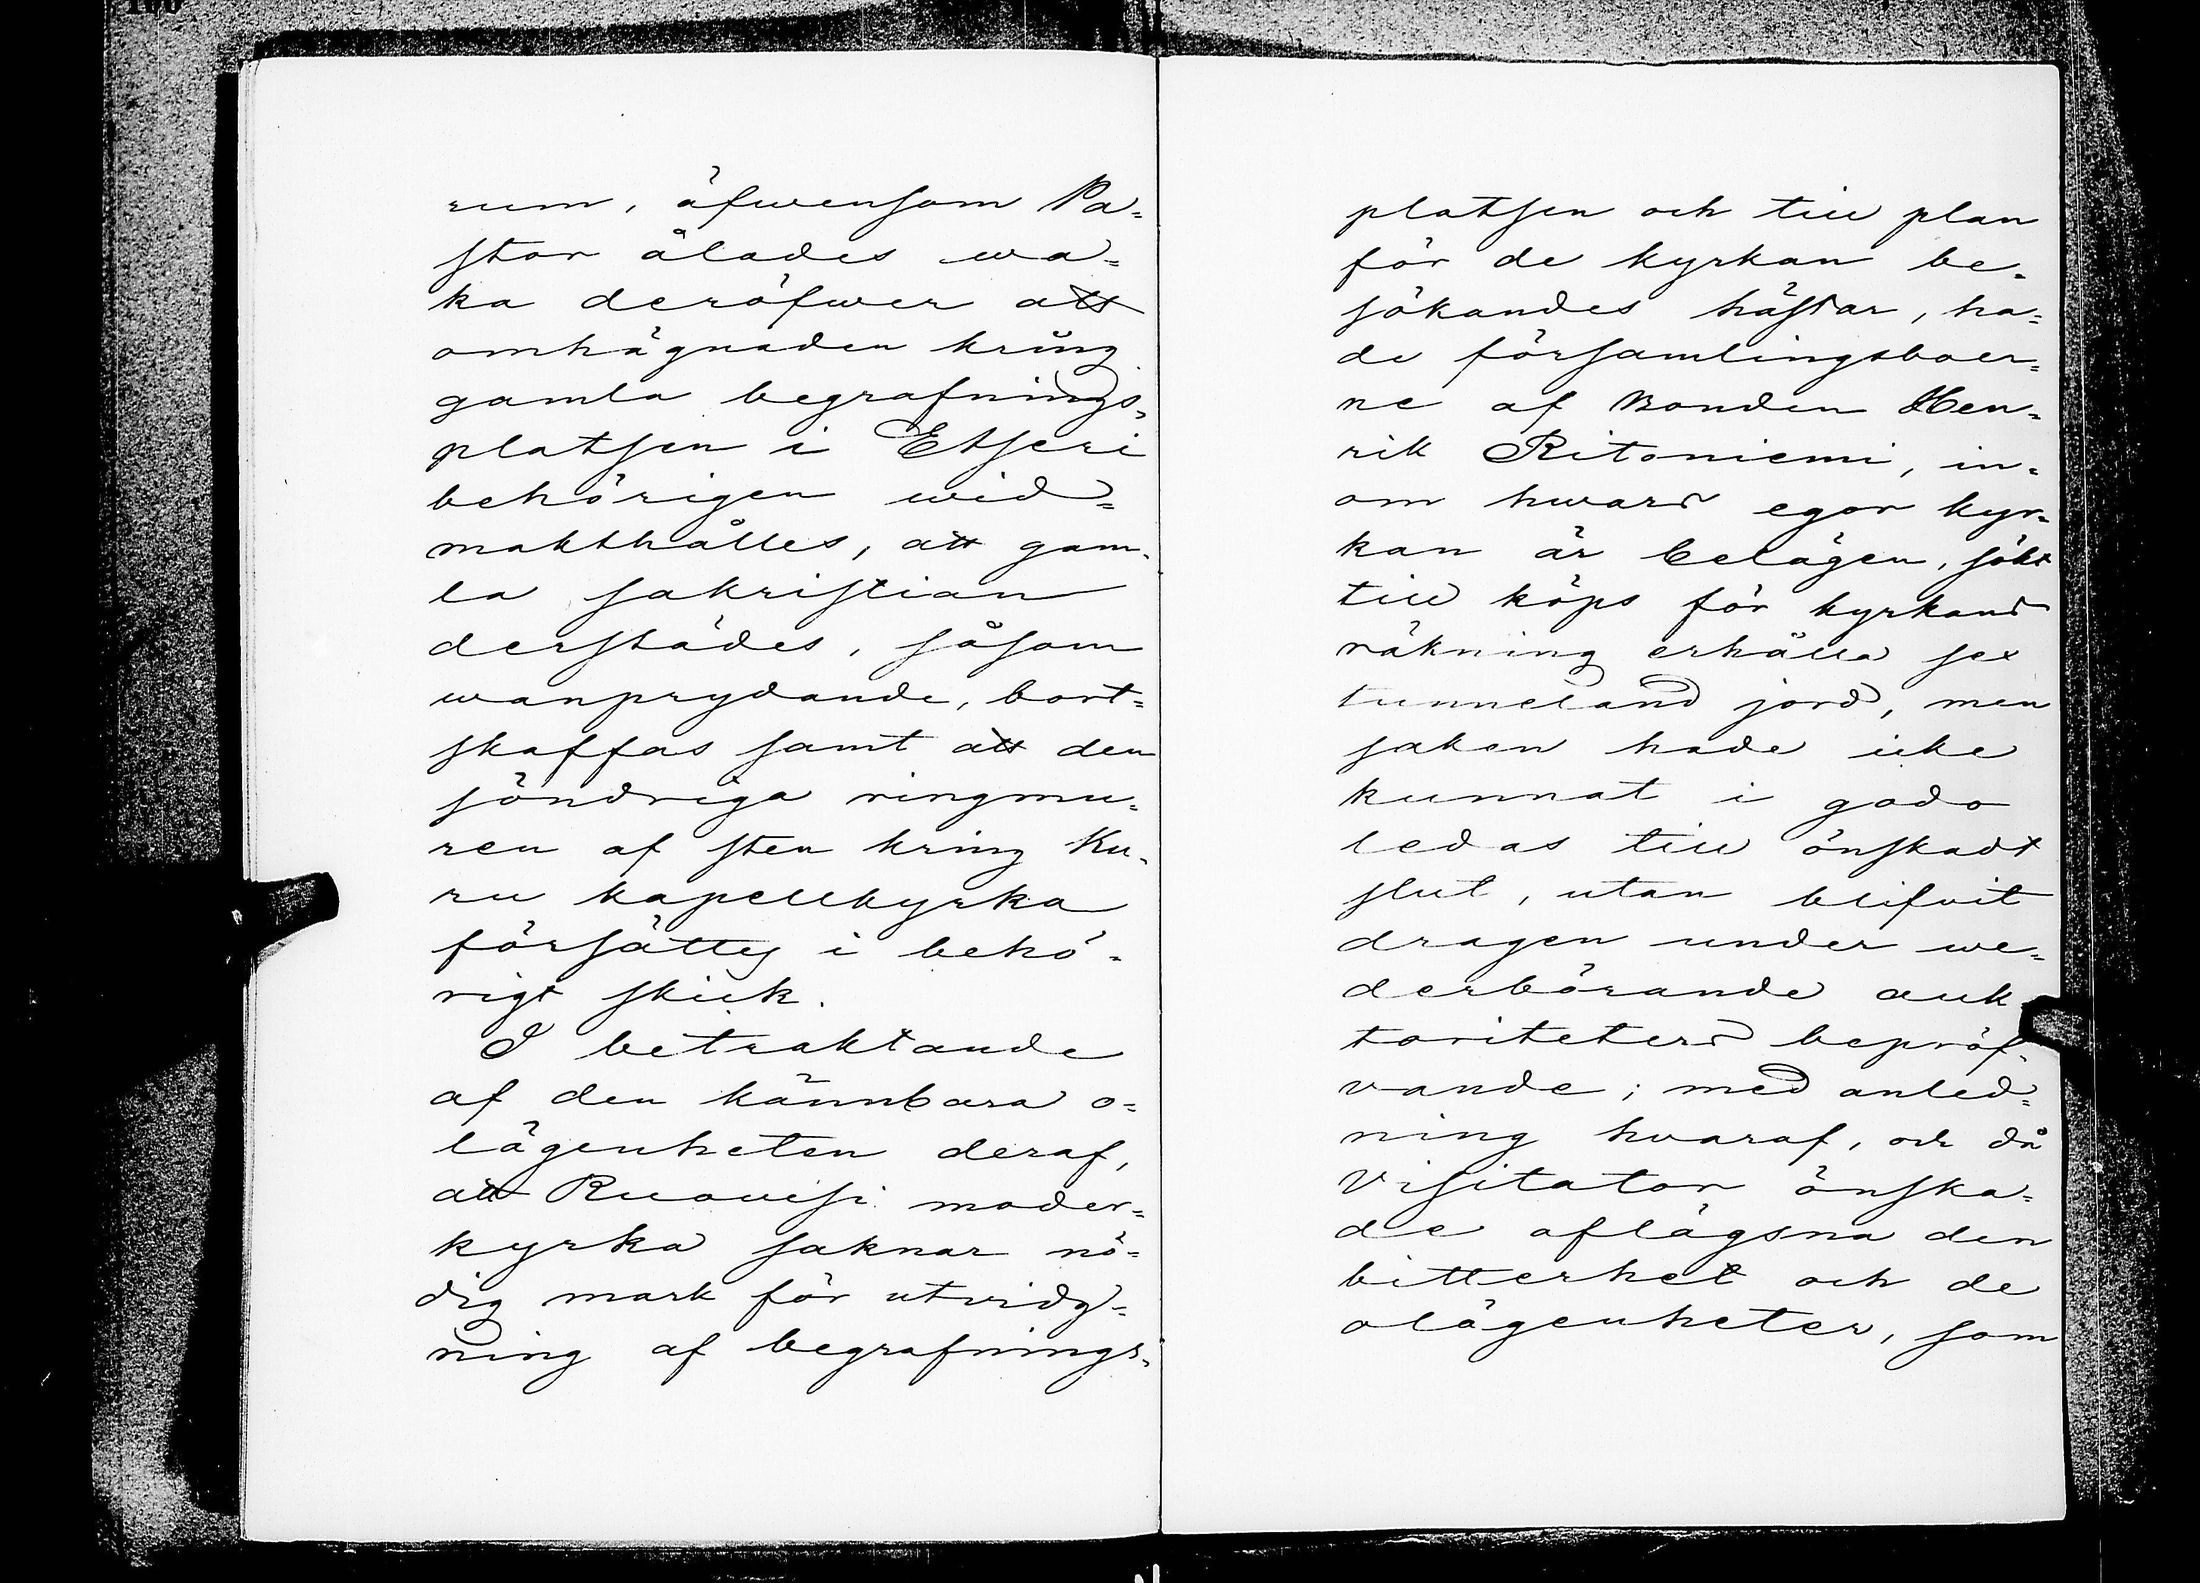 rum, äfwensom Pa=
stor ålades wa=
ka deröfwer att
omhägnaden kring
gamla begrafnings=
platsen i Etseri
behörigen wid=
makthålles, att gam=
la sakristian
derstädes, såsom
wanprydande, bort=
skaffas samt att den
söndriga ringmu=
ren af sten kring Ku=
ru kapellkyrka
försättes i behö=
rigt skick.
I betraktande
af den kännbara o=
lägenheten deraf,
att Ruovesi moder=
kyrka saknar nö=
dig mark för utvidg=
ning af begrafnings=
platsen och till plan
för de kyrkan be=
sökandes hästar, ha=
de församlingsboer=
ne af Bonden Hen=
rik Ritoniemi, in=
om hwars egor kyr=
kan är belägen, sökt
till köps för kyrkans
räkning erhålla sex
tunneland jord, men
saken hade icke
kunnat i godo
ledas till önskadt
slut, utan blifvit
dragen under we=
derbörande auk=
toriteters bepröf=
vande; med anled=
ning hvaraf, och då
Visitator önska=
de aflägsna den
bitterhet och de
olägenheter, som